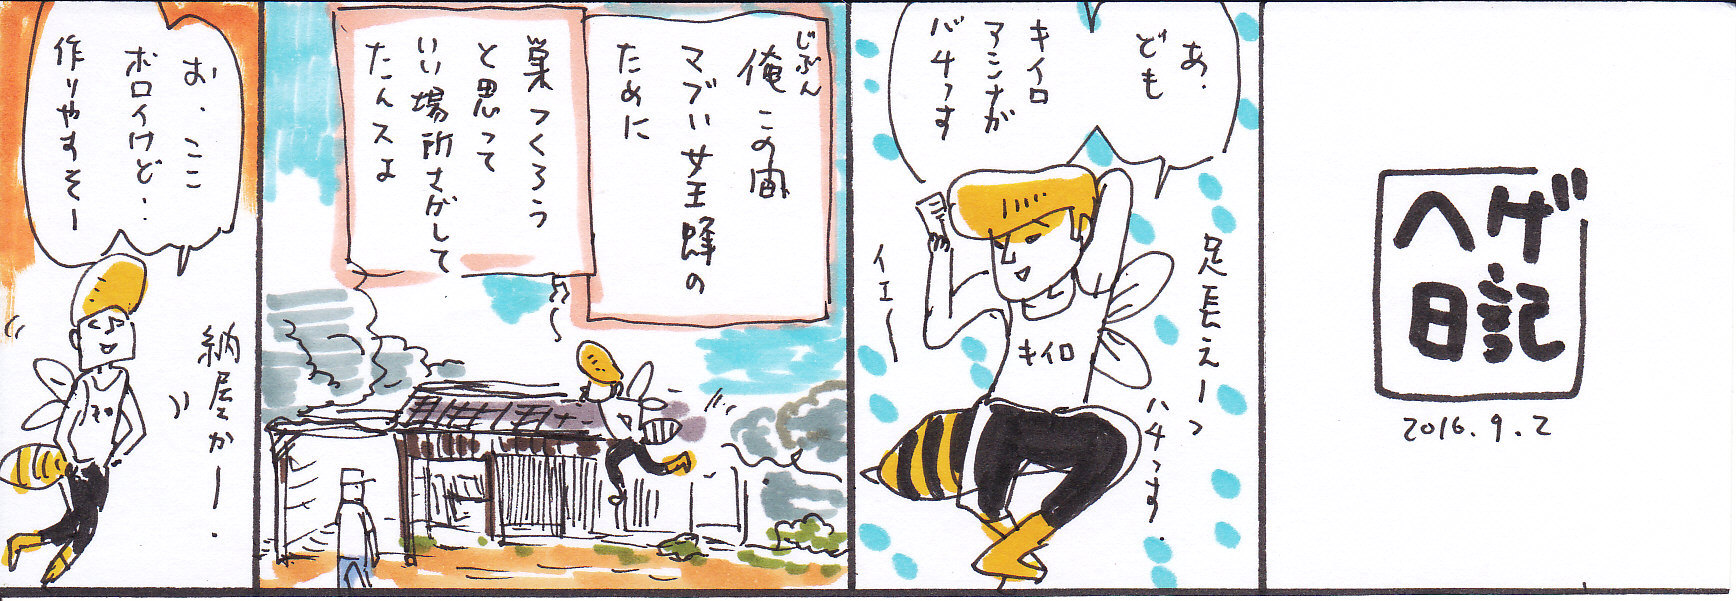 ヘゲ
日記
2016.9.2
あ、
ども
キイロ
アシナガ
バチっす
足長えーっ
ハチっす.
イエ〜
キイロ
じぶん
俺この宙
マブい女王蜂の
ために
巣つくろう
と思って
いい場所さがして
たんスよ
お、ここ
ボロイけど、
作りやすそー
納屋かー.